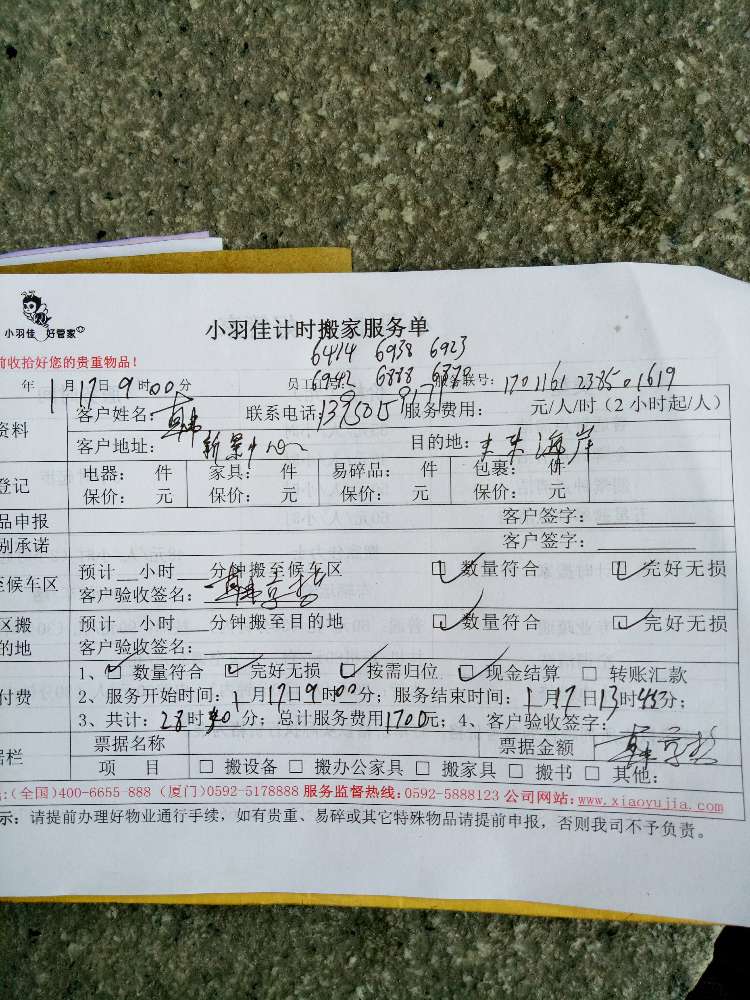 小羽佳 好管家
小羽佳计时搬家服务单
前收拾好您的贵重物品!
6414 6938 6923
6942 6888 6878
年 1月17日9时00分 员工工号: 服务联号: 1701161238501619
资料 客户姓名: 韩 联系电话: 服务费用: 元/人/时(2小时起/人)
客户地址: 新景中心 目的地: 未来海岸
登记 电器: 件 家具: 件 易碎品: 件 包裹: 件
保价: 元 保价: 元 保价: 元 保价: 元
品申报 客户签字:
别承诺 客户签字:
至候车区 预计__小时__分钟搬至候车区 ☑ 数量符合 ☑ 完好无损
客户验收签名:
区搬 预计__小时__分钟搬至目的地 ☑ 数量符合 ☑ 完好无损
的地 客户验收签名:
1、☑ 数量符合 ☑ 完好无损 ☑ 按需归位 ☑ 现金结算 □ 转账汇款
付费 2、服务开始时间: 1月17日9时00分; 服务结束时间: 1月17日13时43分;
3、共计: 28时 分; 总计服务费用1700元; 4、客户验收签字:
据栏 票据名称 票据金额
项 目 □ 搬设备 □ 搬办公家具 □ 搬家具 □ 搬书 □ 其他:
:(全国)400-6655-888 (厦门)0592-5178888 服务监督热线:0592-5888123 公司网站:www.xiaoyujia.com
示: 请提前办理好物业通行手续, 如有贵重、易碎或其它特殊物品请提前申报, 否则我司不予负责。